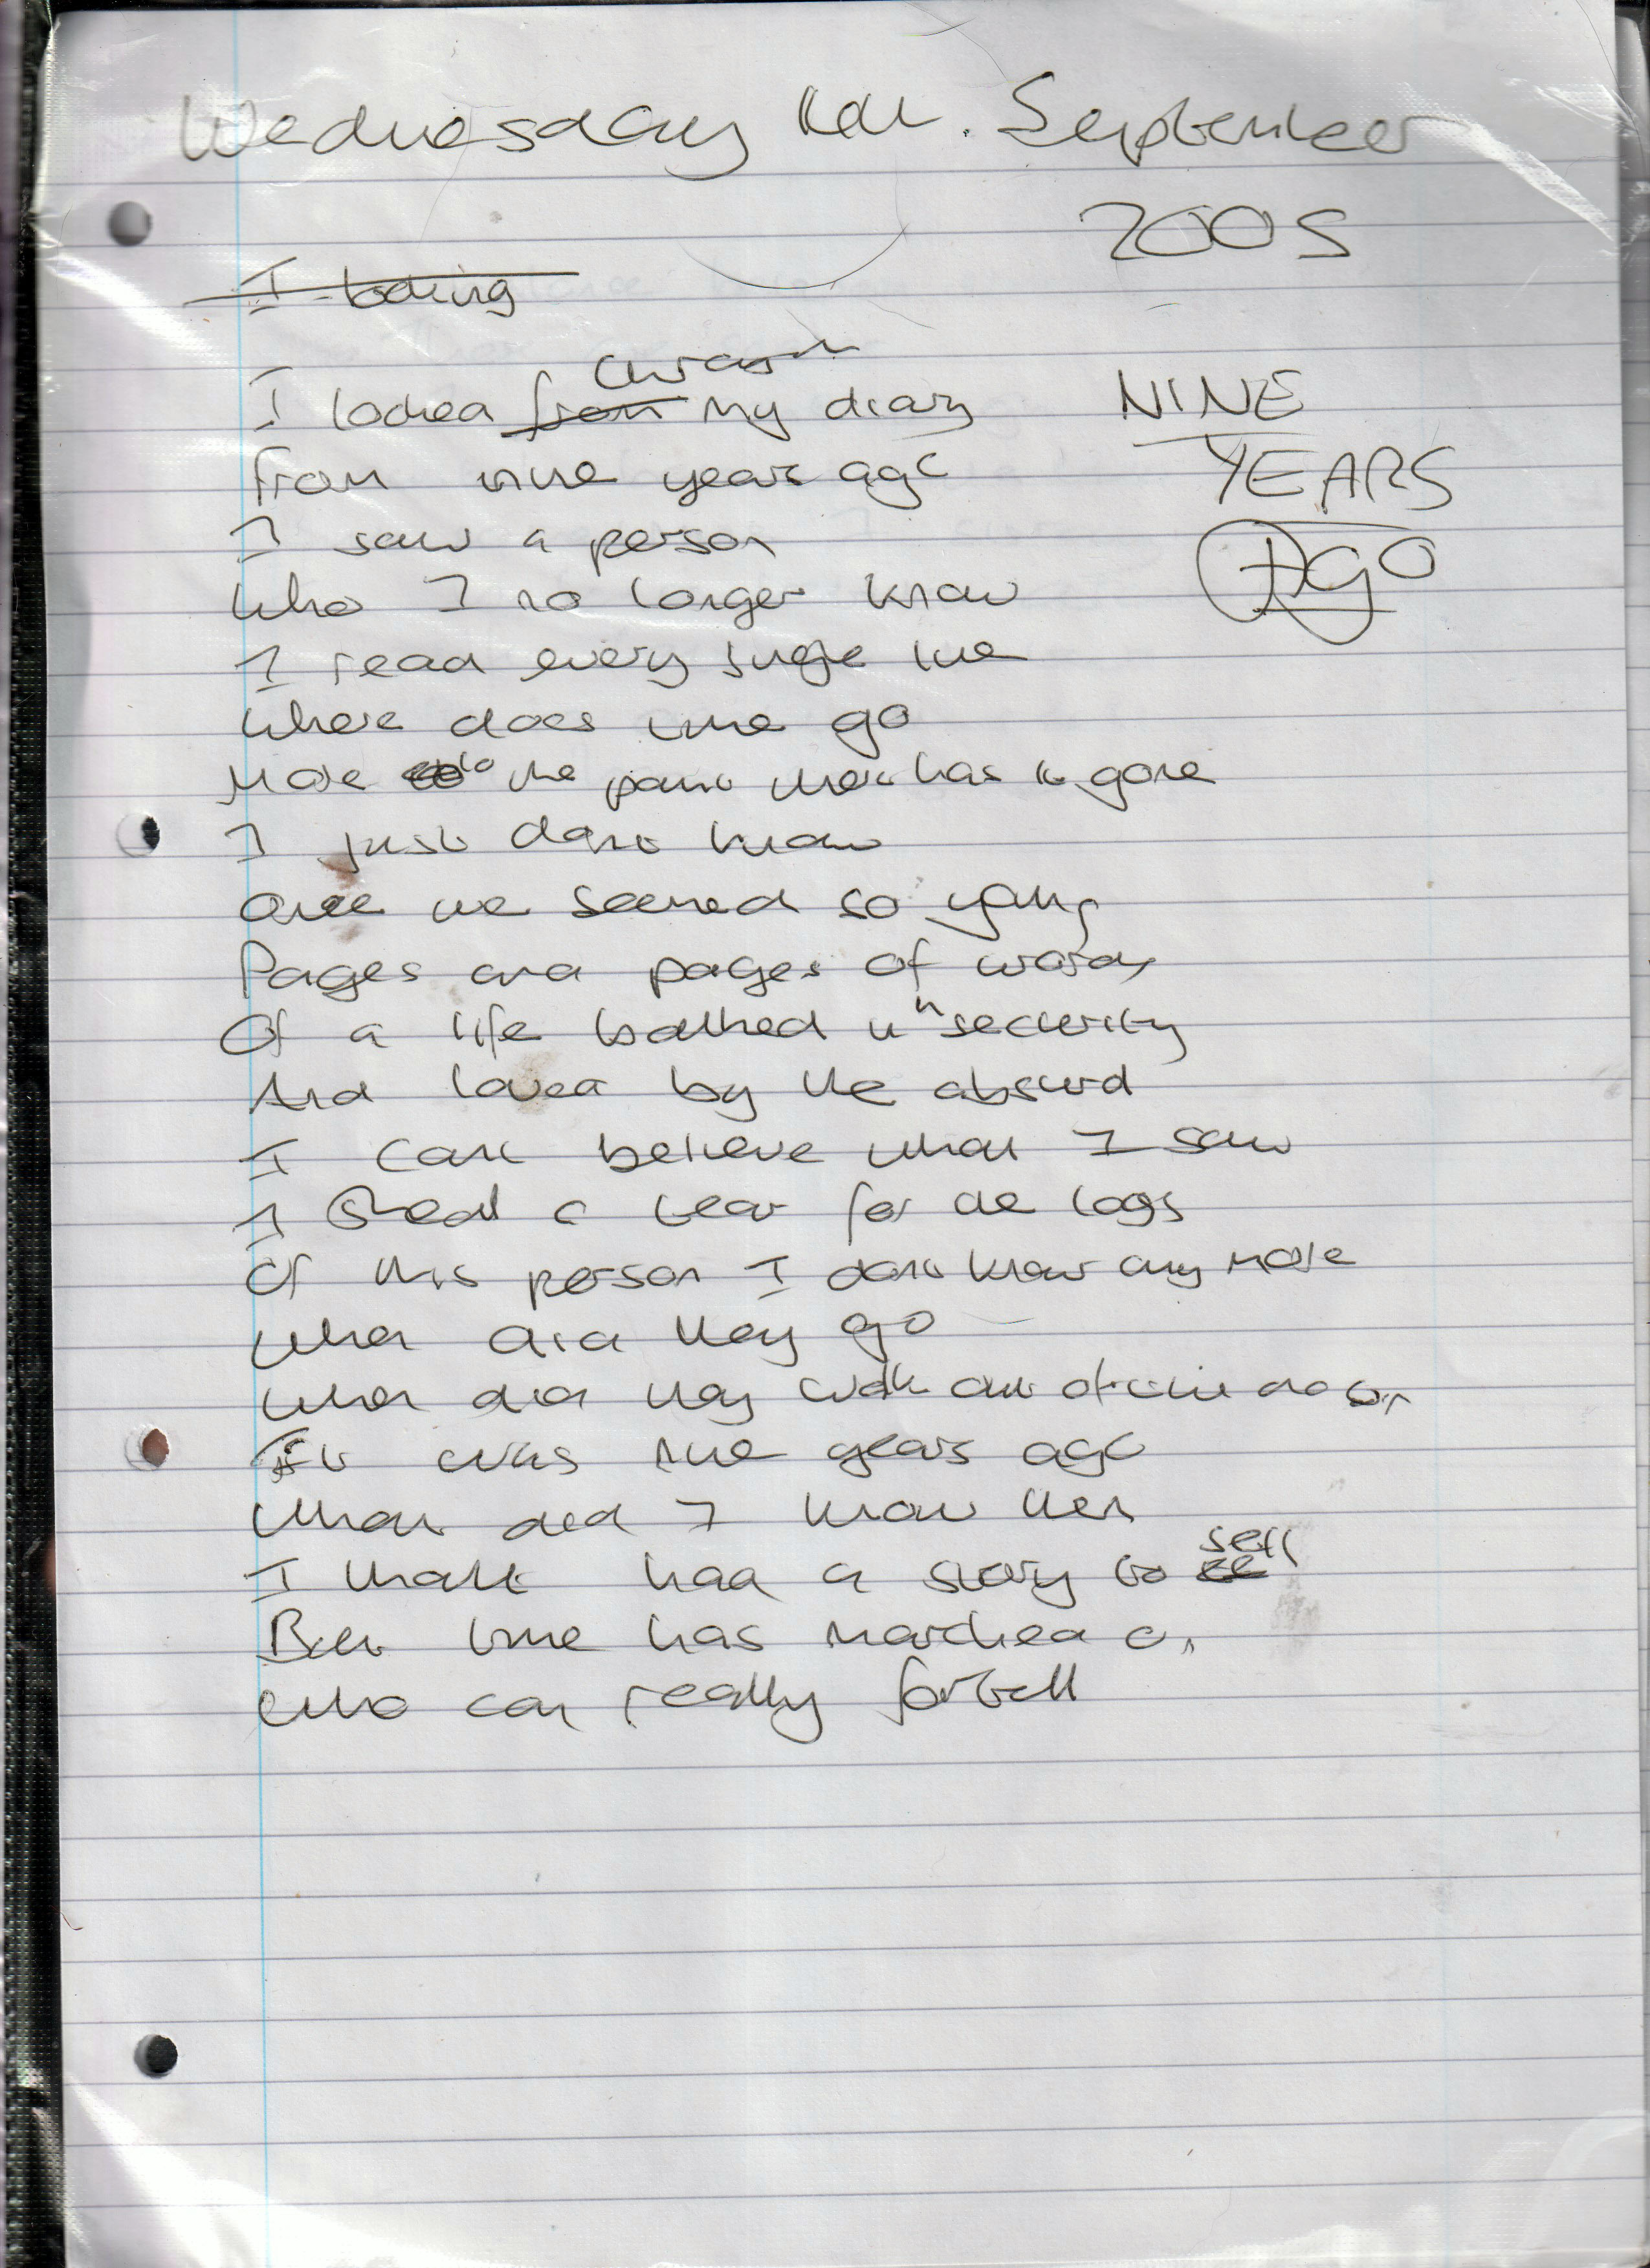 Wednesday 14th. September
2005
I looking
through
I looked from my diary
NINE
from nine years ago
YEARS
I saw a person
AGO
Who I no longer know
I read every single line
Where does time go
More to the point where has it gone
I just dont know
once we seemed so young
Pages and pages of words
Of a life bathed in security
And loved by the absurd
I cant believe what I saw
I Shed a tear for the logs
Of this person I dont know any more
When did they go
When did they walk out of the door
It was nine years ago
What did I know then
I thought had a story to sell
But time has marched on
Who can really fortell